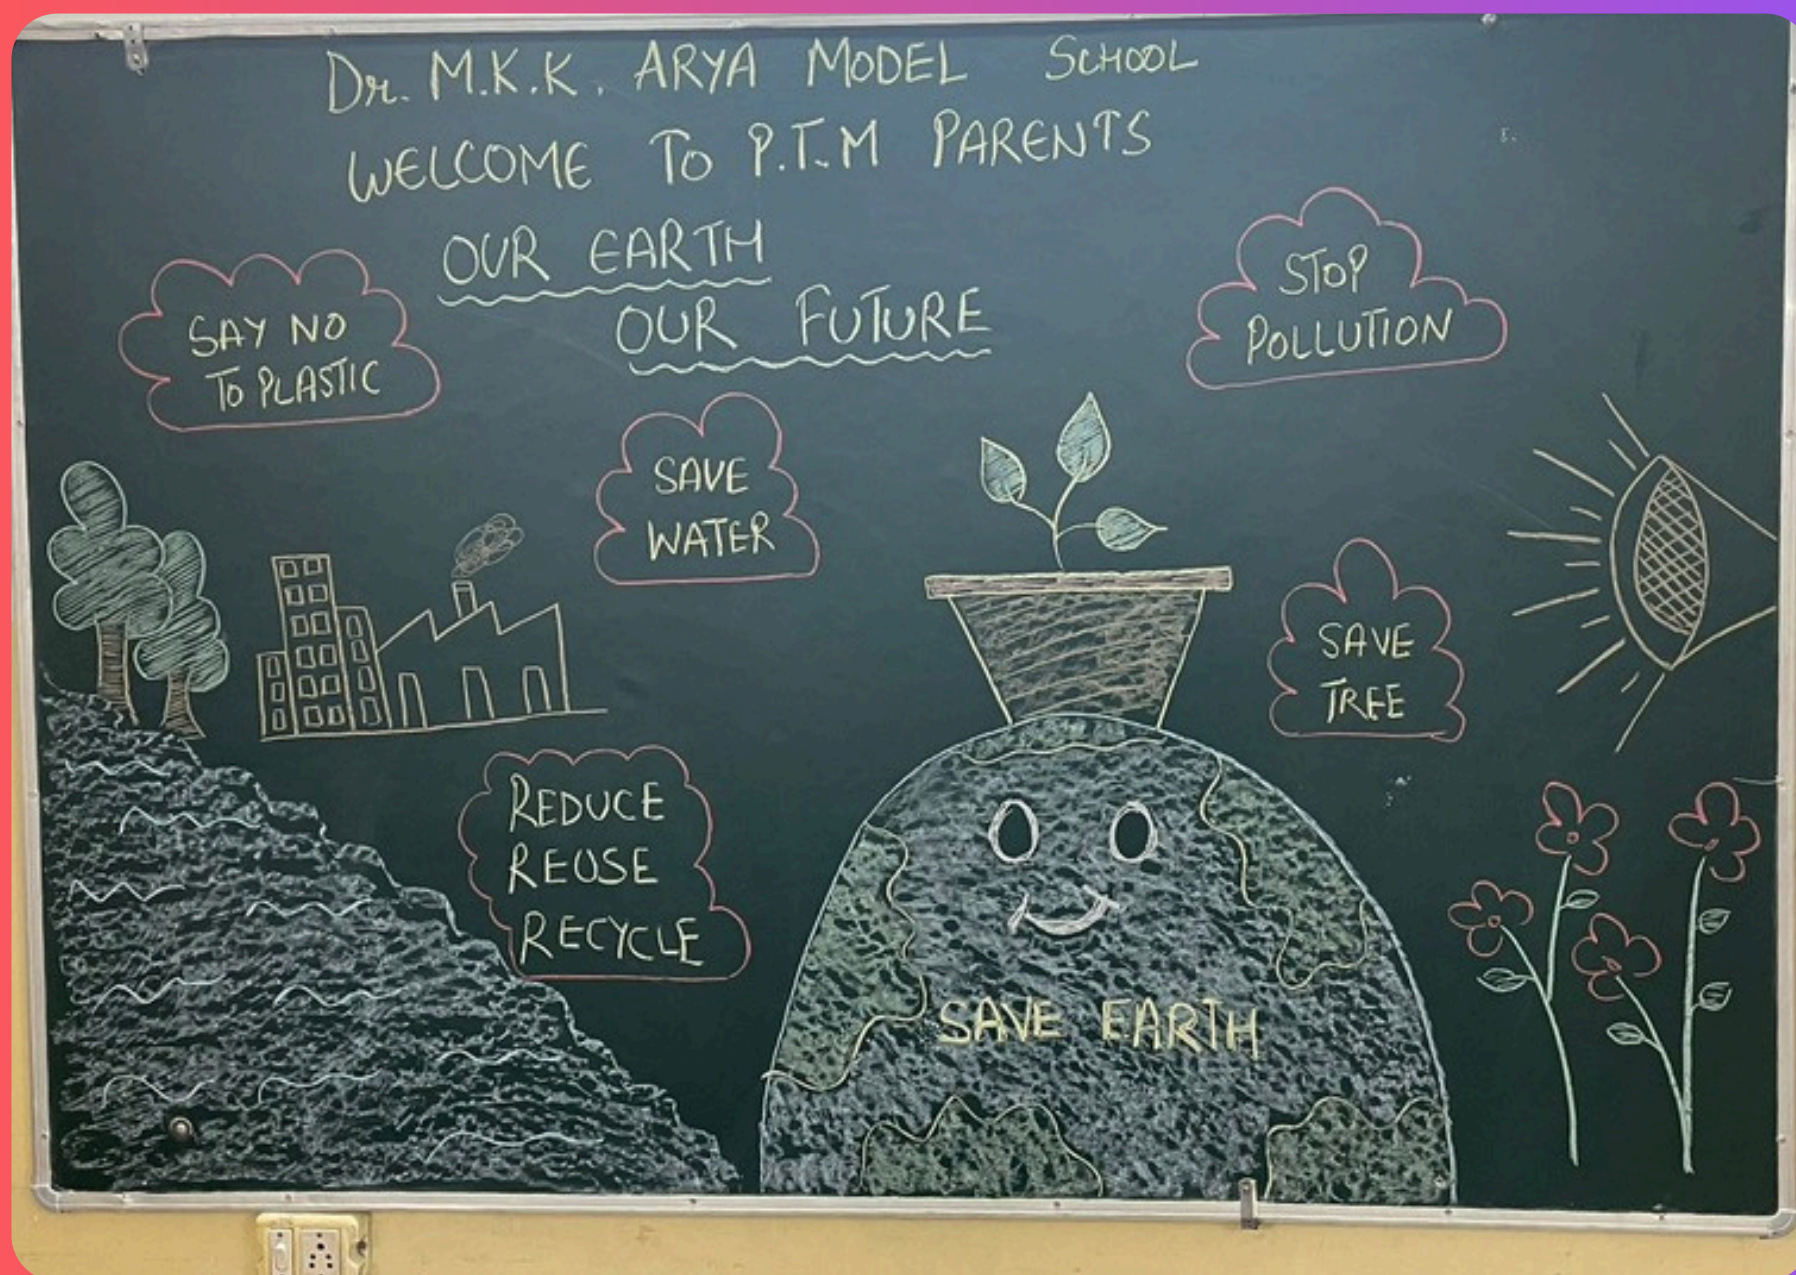 Dr. M.K.K. ARYA MODEL SCHOOL
WELCOME TO P.T.M PARENTS
OUR EARTH
OUR FUTURE
SAY NO
TO PLASTIC
STOP
POLLUTION
SAVE
WATER
SAVE
TREE
REDUCE
REUSE
RECYCLE
SAVE EARTH